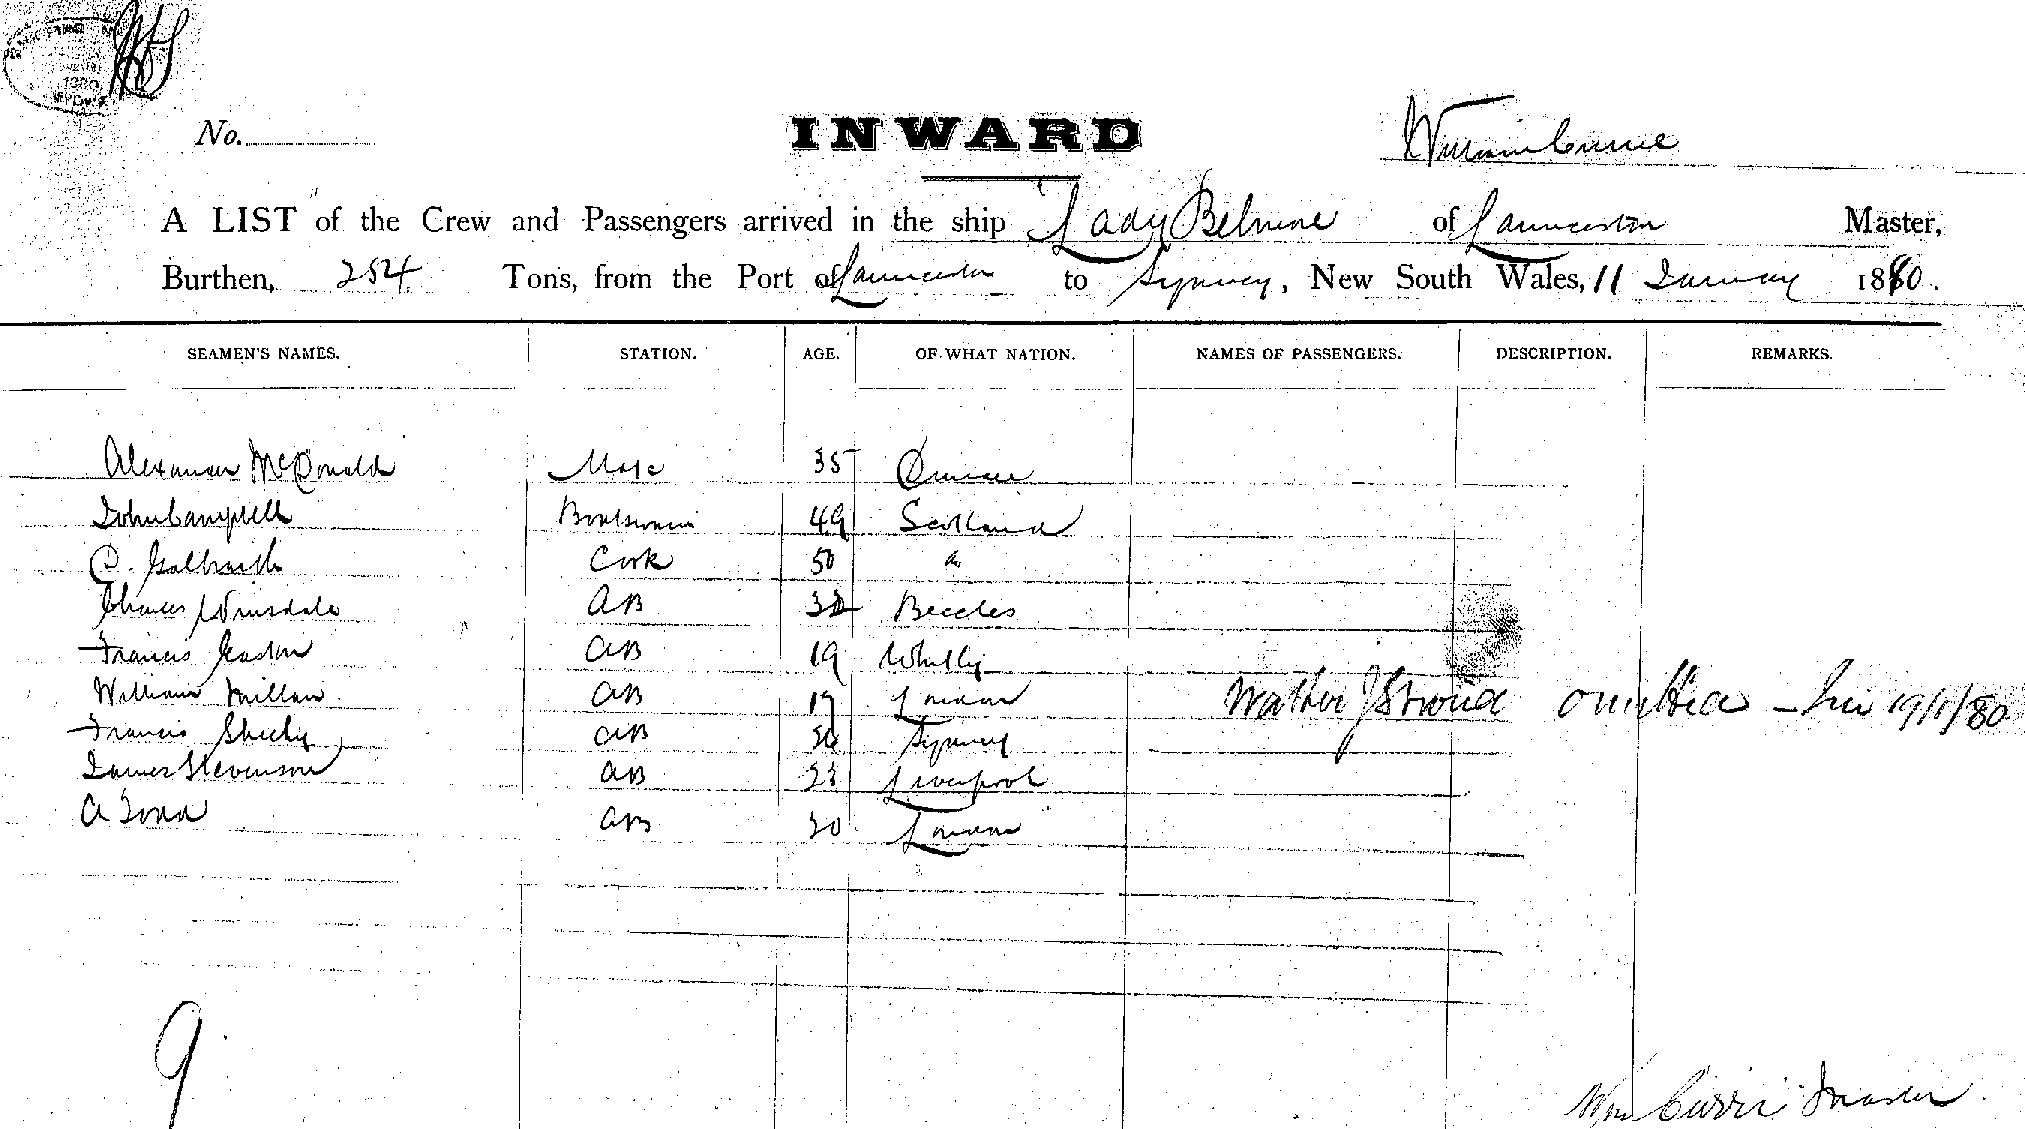 No.
INWARD
William Currie
A LIST of the Crew and Passengers arrived in the ship Lady Belmore of Launceston Master,
Burthen, 254 Tons, from the Port of Launceston to Sydney, New South Wales, 11 January 1880.
SEAMEN'S NAMES. STATION. AGE. OF WHAT NATION. NAMES OF PASSENGERS. DESCRIPTION. REMARKS.
Alexander McDonald Mate 35
John Campbell Boatswain 49 Scotland
C. Galbraith Cook 50
Charles AB Beccles
Francis AB 19 Whitby
William Millar AB London Walter J Stroud omitted 19/1/80
Francis Sheehy AB Sydney
James Stevenson AB 23 Liverpool
A Todd AB 30 London
9
Wm Currie Master